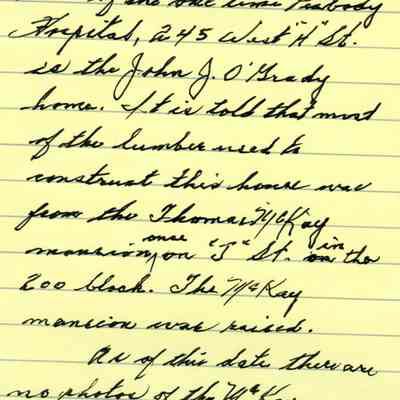 of the one time Peabody
Hospital, 245 West "H" St.
is the John J. O'Grady
home. It is told that most
of the lumber used to
construct this house was
from the Thomas McKay
mansion, once on "J" St. in the
200 block. The McKay
mansion was raised.
As of this date there are
no photos of the McKay